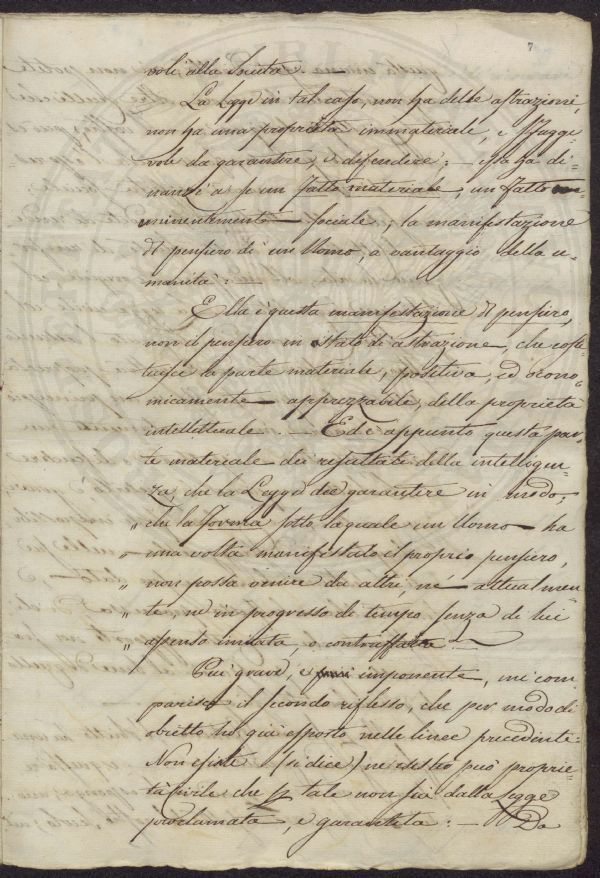 7
voli alla Società —
La Legge in tal caso, non ha delle astrazioni,
non ha una proprietà immateriale, e sfugge
vole da garantire, e difendere: — essa ha di
nanzi a se un fatto materiale, un fatto
sociale, la manifestazione
di pensiero di un Uomo, a vantaggio della u-
manità: —
Ella è questa manifestazione di pensiero,
non il pensiero in stato di astrazione, che costi
tuisce la parte materiale, positiva, ed econo-
micamente apprezzabile della proprietà
intellettuale. — Ed è appunto questa par-
te materiale dei risultati della intelligen-
za, che la Legge dee garantire in modo,
„ che la forma sotto la quale un Uomo ha
„ una volta manifestato il proprio pensiero,
„ non possa venire da altri, né attualmen
„ te, ne in progresso di tempo senza di lui
„ assenso imitata, o contraffatta —
Più grave, e imponente, mi com
parisce il secondo riflesso, che per modo di
obietto ho qui esposto nelle linee precedenti:
Non esiste (si dice) ne esister può proprie
tà civile che p tale non sia dalla legge
proclamata, e garantita: — Da